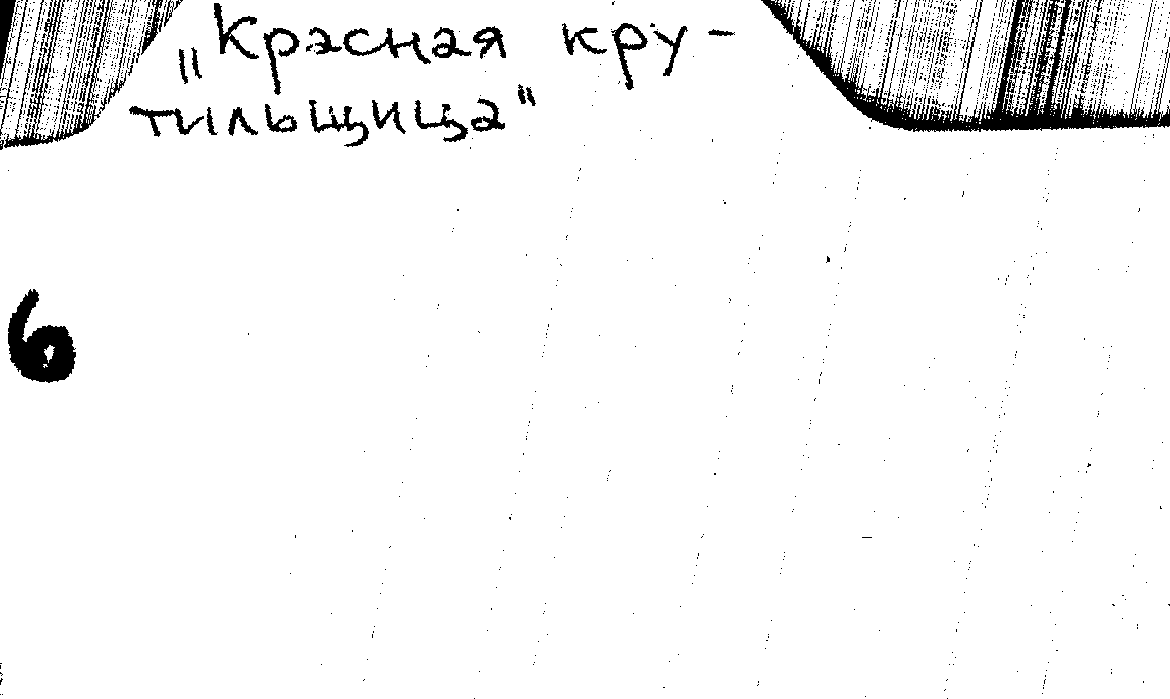 „Красная кру-
тильщица"
6